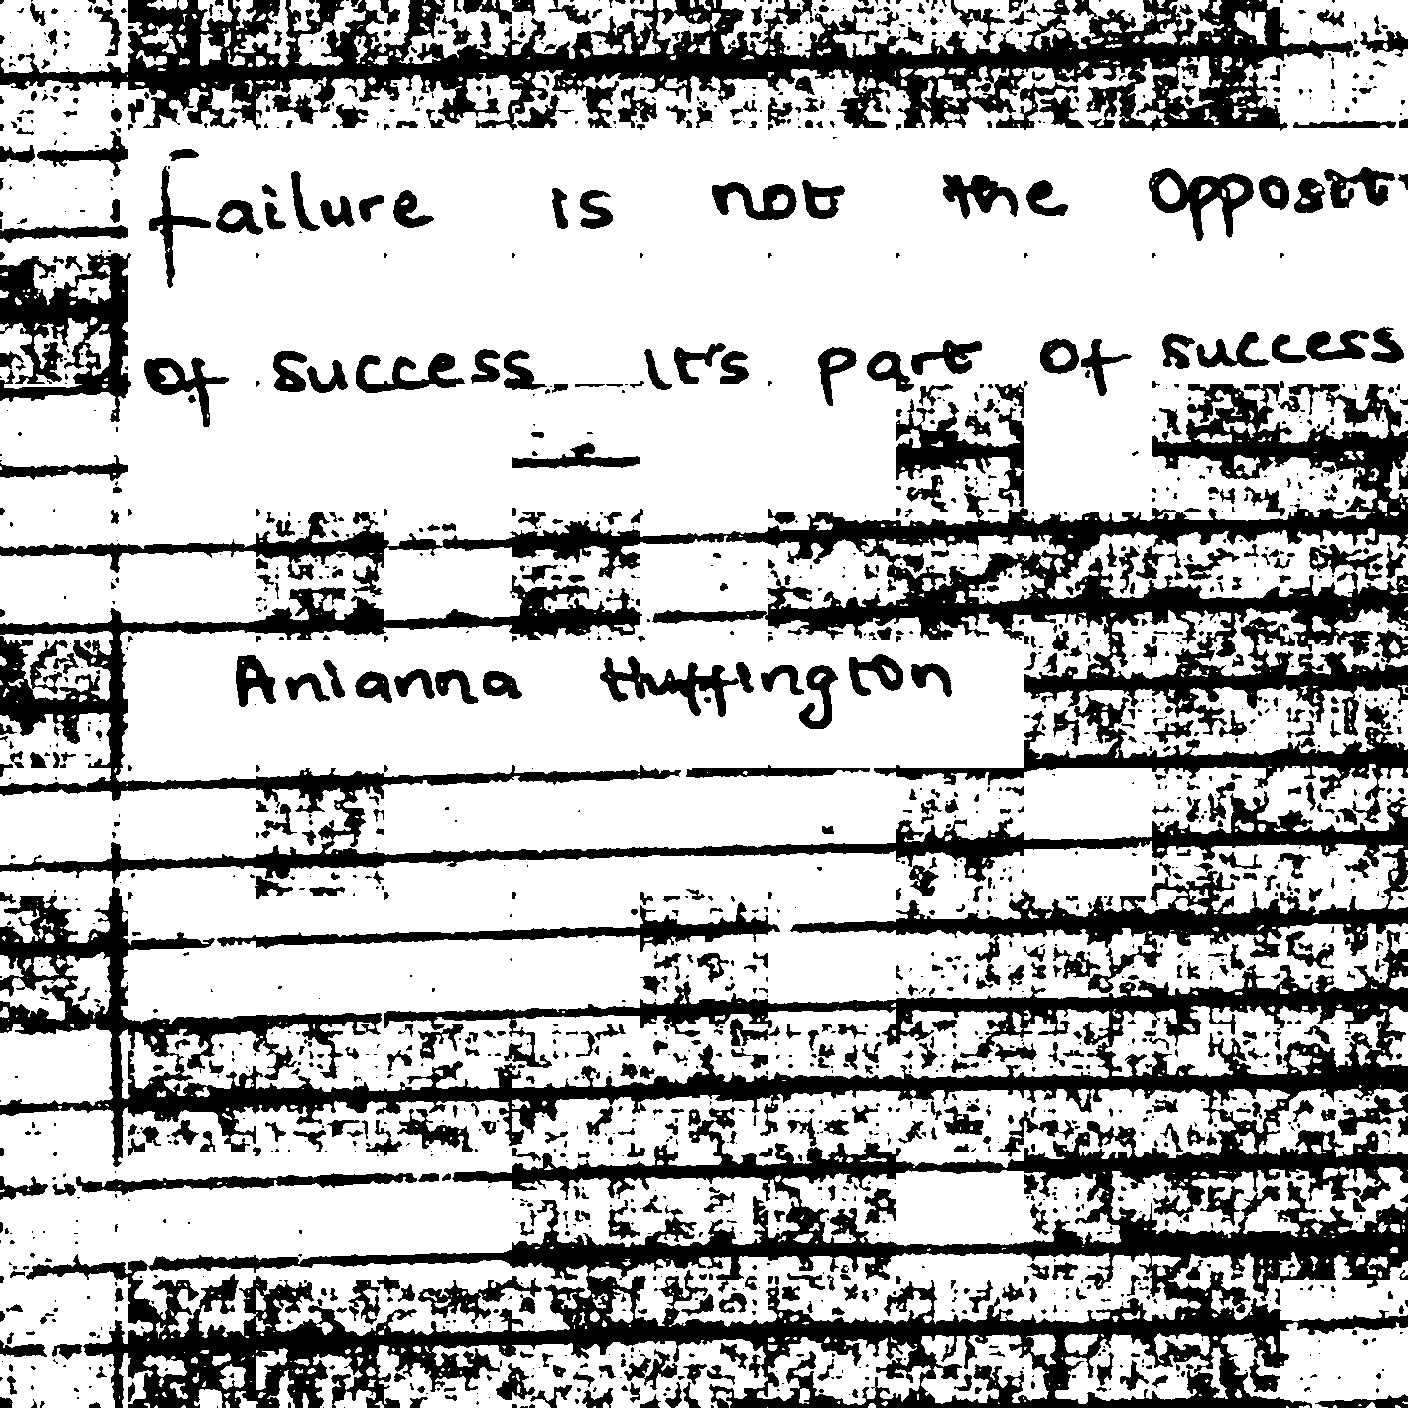 failure is not the opposit
of success It's part of success
Arianna Huffington